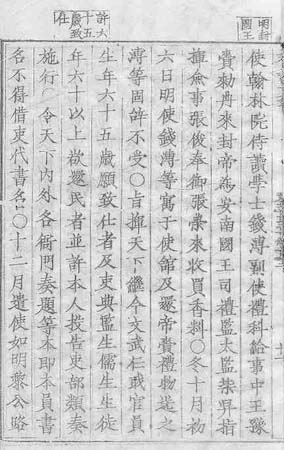 明封
國王
使翰林院侍讀學士錢溥副使禮科給事中王豫
賫勅冊來封帝為安南國王司禮監太監柴昇指
揮僉事張俊奉御張榮來收買香料○冬十月初
六日明使錢溥等寓于使館及還帝賫禮物送之
溥等固辞不受○旨揮天下繼今文武仕或官員
許六
十五
歲致
仕
生年六十五歲願致仕者及吏典監生儒生生徒
年六十以上欲還民者並許本人投告吏部類奏
施行○令天下内外各衙門奏題等本即本員書
名不得借吏代書名○十二月遣使如明黎公路